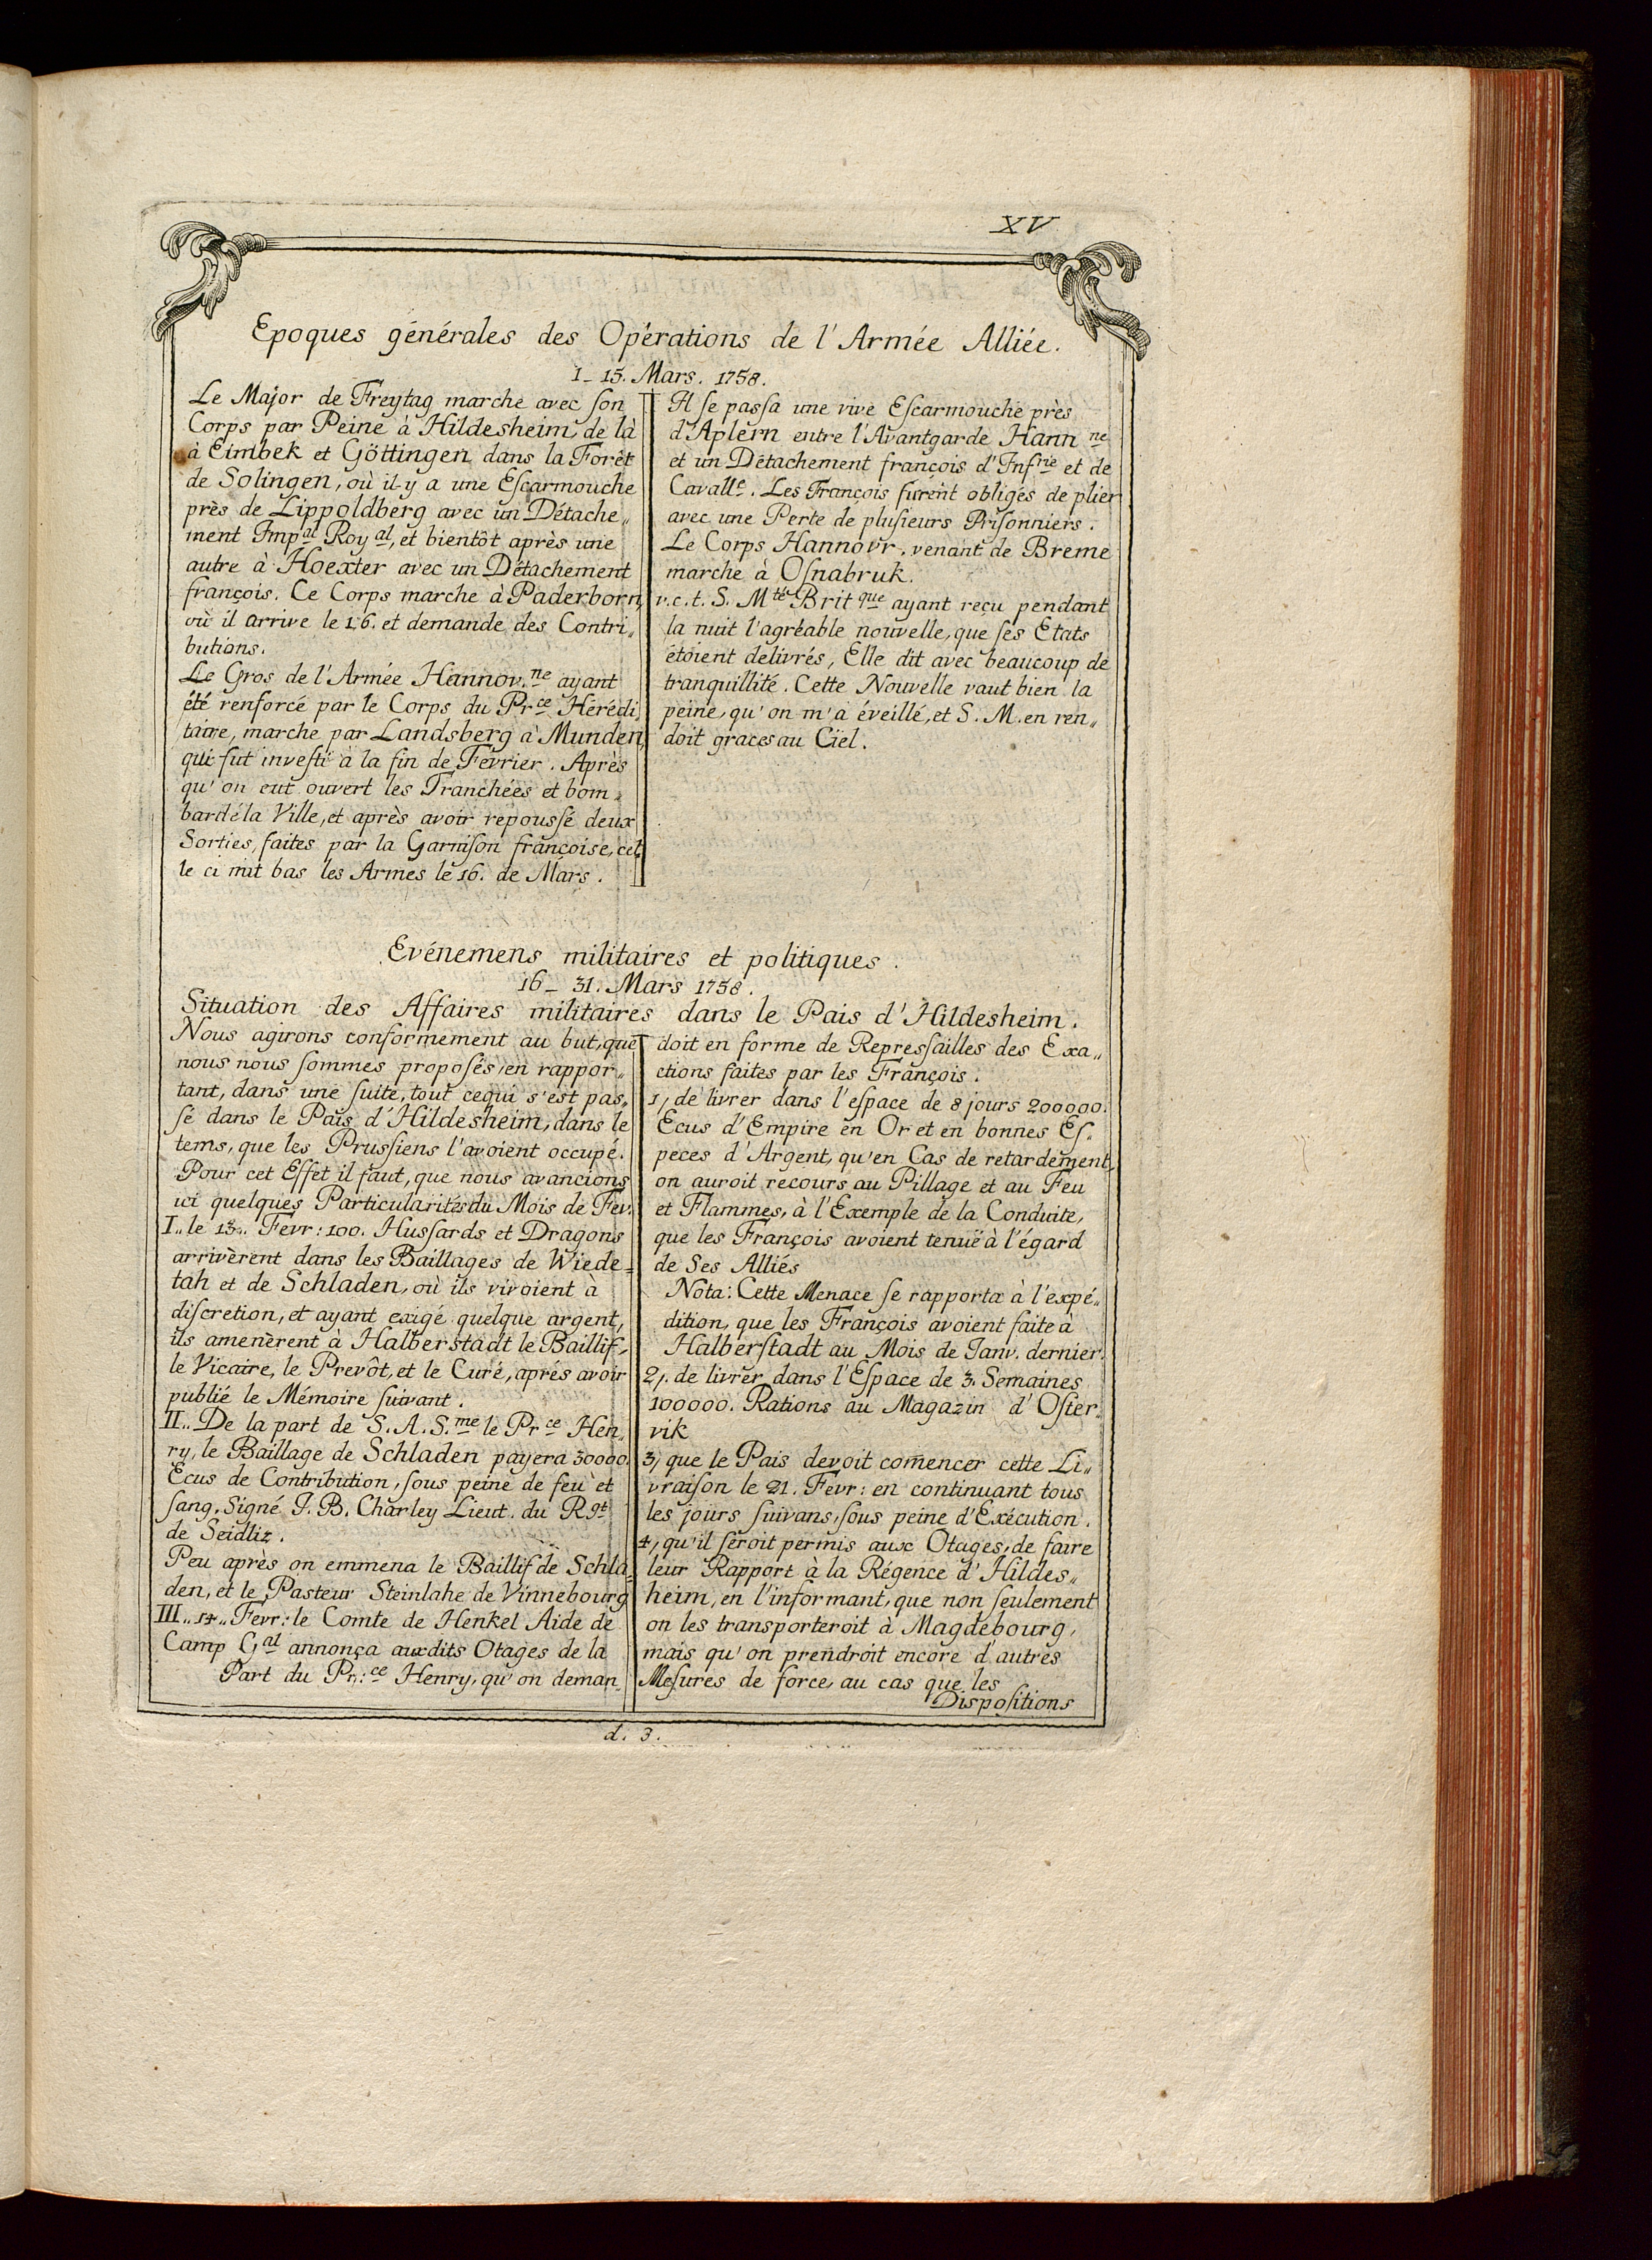 XV
Epoques générales des Opérations de l'Armée Alliée.
1_ 15. Mars. 1758.
Le Major de Freytag marche avec ſon
Corps par Peine à Hildesheim, de là
à Eimbek et Göttingen dans la Forêt
de Solingen, où il y a une Eſcarmouche
près de Lippoldberg avec un Détache„
ment Impal Royal, et bientôt après une
autre à Hoexter avec un Détachement
françois. Ce Corps marche à Paderborn,
où il arrive le 16. et demande des Contri„
butions.
Le Gros de l'Armée Hannov.ne ayant
été renforcé par le Corps du Prce Hérédi„
taire, marche par Landsberg à Munden,
qui fut inveſti à la fin de Fevrier. Après
qu'on eut ouvert les Tranchées et bom„
bardé la Ville, et après avoir repouſsé deux
Sorties, faites par la Garniſon françoise, cel„
le ci mit bas les Armes le 16. de Mars.
Il ſe paſsa une vive Eſcarmouche près
d'Aplern entre l'Avantgarde Hann ne
et un Détachement françois d'Infrie et de
Cavalle. Les François furent obligés de plier
avec une Perte de pluſieurs Priſonniers.
Le Corps Hannovr. venant de Breme
marche à Oſnabruk.
v.c.t. S. Mté Brit que ayant reçu pendant
la nuit l'agréable nouvelle, que ſes Etats
étoient delivrés, Elle dit avec beaucoup de
tranquillité. Cette Nouvelle vaut bien la
peine, qu'on m'a éveillé, et S. M. en ren„
doit graces au Ciel.
Evénemens militaires et politiques.
16_ 31. Mars 1758.
Situation des Affaires militaires dans le Pais d'Hildesheim.
Nous agirons conformement au but, que
nous nous ſommes proposés, en rappor„
tant, dans une ſuite, tout cequi s'est pas„
ſé dans le Pais d'Hildesheim, dans le
tems, que les Pruſsiens l'avoient occupé.
Pour cet Effet il faut, que nous avancions
ici quelques Particularités du Mois de Fev.
I.. le 13.. Fevr: 100. Huſsards et Dragons
arrivèrent dans les Baillages de Wiede=
lah et de Schladen, où ils vivoient à
diſcretion, et ayant exigé quelque argent,
ils amenèrent à Halberstadt le Baillif,
le Vicaire, le Prevôt, et le Curé, aprés avoir
publié le Mémoire ſuivant.
II.. De la part de S. A. S.me le Prce Hen„
ry, le Baillage de Schladen payera 30000.
Ecus de Contribution, ſous peine de feu et
ſang. Signé J. B. Charley Lieut. du Rgt
de Seidliz.
Peu après on emmena le Baillif de Schla„
den, et le Pasteur Steinlahe de Vinnebourg
III.. 14.. Fevr: le Comte de Henkel Aide de
Camp Gal annonça auxdits Otages de la
Part du Pr:ce Henry, qu'on deman„
doit en forme de Repreſsailles des Exa„
ctions faites par les François.
1, de livrer dans l'eſpace de 8 jours 200000.
Ecus d'Empire en Or et en bonnes Eſ„
peces d'Argent, qu'en Cas de retardement,
on auroit recours au Pillage et au Feu
et Flammes, à l'Exemple de la Conduite,
que les François avoient tenuë à l'égard
de Ses Alliés
Nota: Cette Menace ſe rapporta à l'expé„
dition, que les François avoient faite à
Halberſtadt au Mois de Janv. dernier.
2,. de livrer dans l'Eſpace de 3. Semaines
100000. Rations au Magazin d'Oſter„
vik
3, que le Pais devoit com̄encer cette Li„
vraiſon le 21. Fevr: en continuant tous
les jours ſuivans, ſous peine d'Exécution.
4, qu'il ſeroit permis aux Otages, de faire
leur Rapport à la Régence d'Hildes„
heim, en l'informant, que non ſeulement
on les transporteroit à Magdebourg,
mais qu'on prendroit encore d'autres
Meſures de force, au cas que les
Dispoſitions
d. 3.